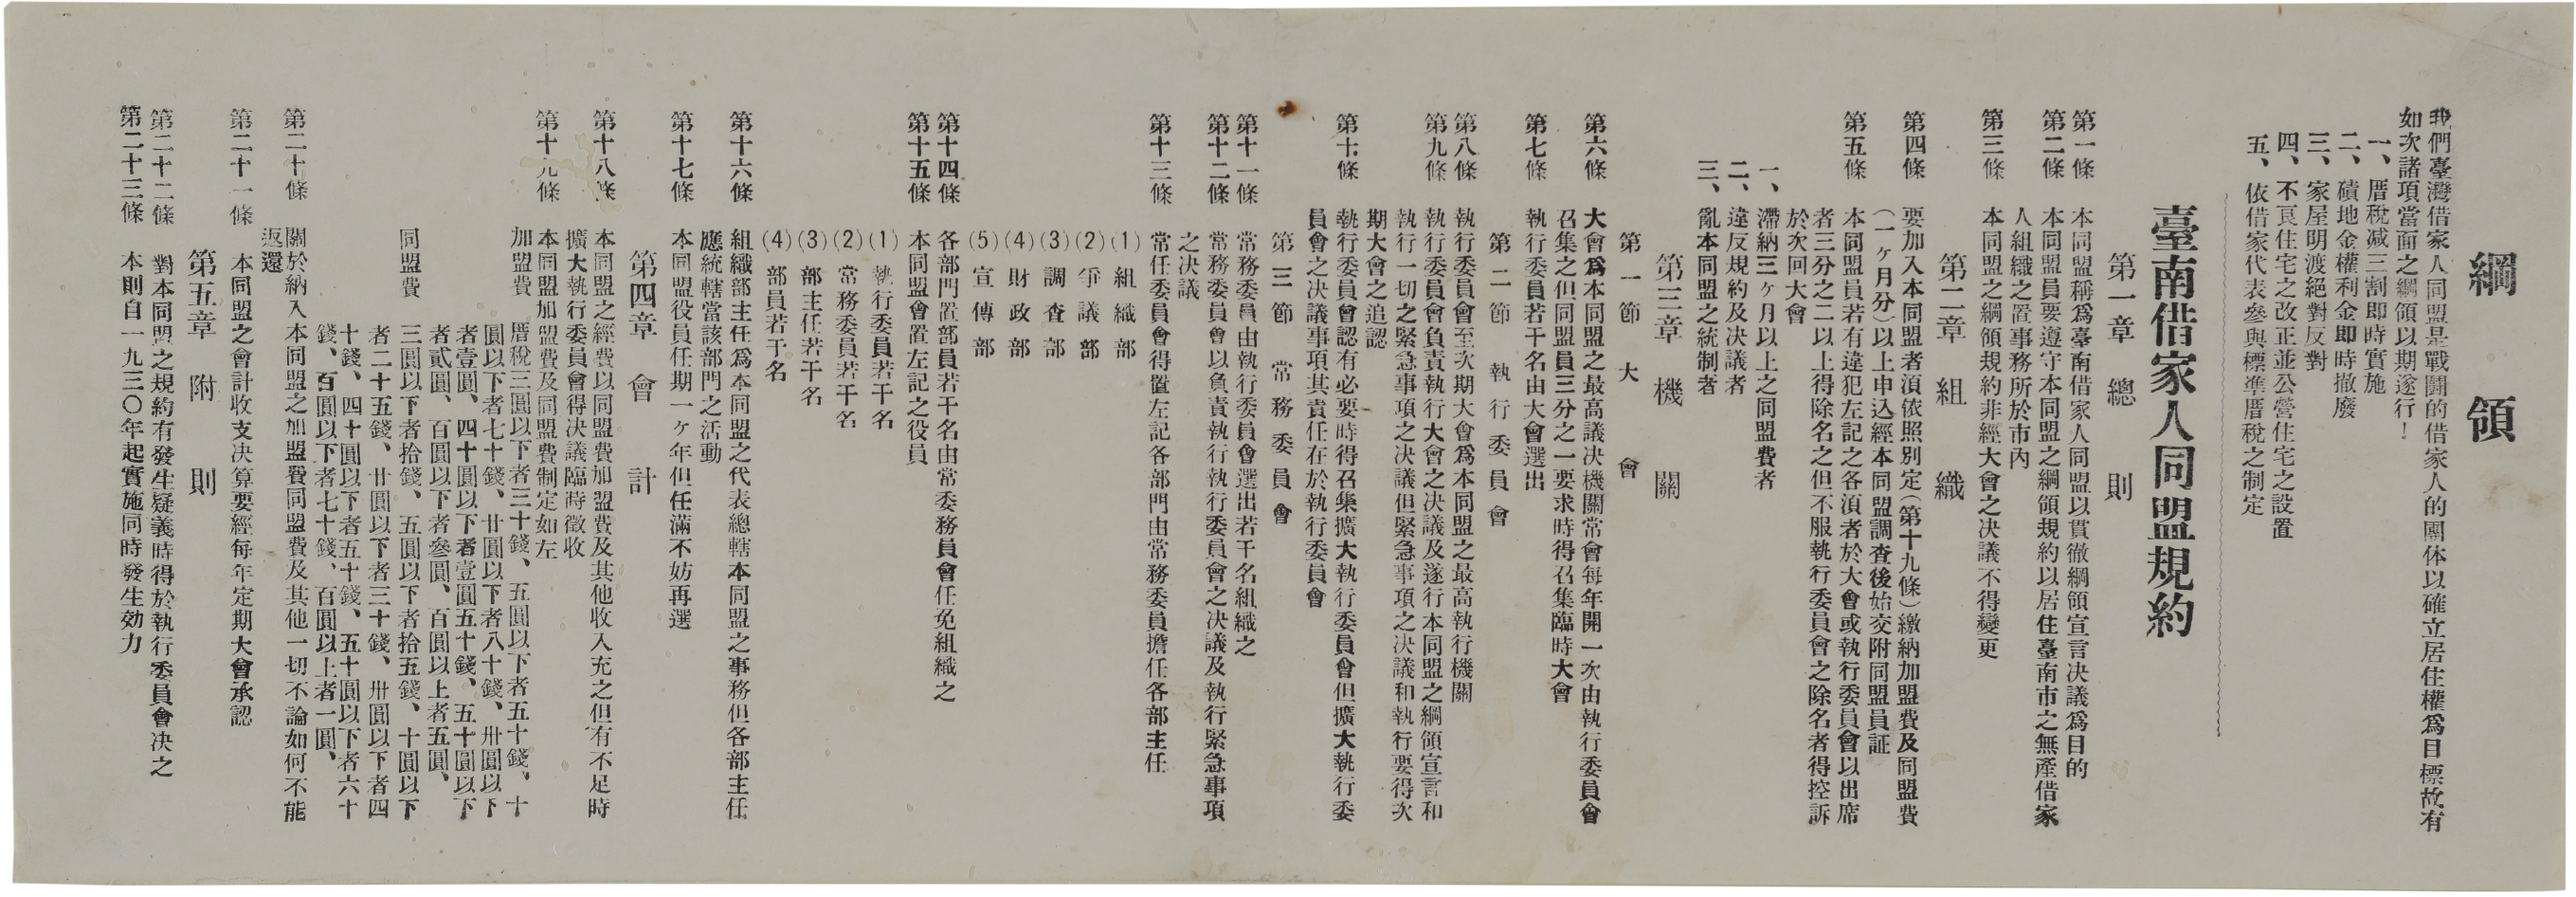 綱領
我們臺灣借家人同盟是戰鬪的借家人的團体以確立居住權爲目標故有
如次諸項當面之綱領以期遂行！
一、厝稅減三割即時實施
二、磧地金權利金即時撤廢
三、家屋明渡絕對反對
四、不良住宅之改正並公營住宅之設置
五、依借家代表參與標準厝稅之制定
臺南借家人同盟規約
第一章 總則
第一條 本同盟稱爲臺南借家人同盟以貫徹綱領宣言決議爲目的
第二條 本同盟員要遵守本同盟之綱領規約以居住臺南市之無產借家
人組織之置事務所於市內
第三條 本同盟之綱領規約非經大會之決議不得變更
第二章 組織
第四條 要加入本同盟者須依照別定（第十九條）繳納加盟費及同盟費
（一ヶ月分）以上申込經本同盟調查後始交附同盟員証
第五條 本同盟員若有違犯左記之各項者於大會或執行委員會以出席
者三分之二以上得除名之但不服執行委員會之除名者得控訴
於次回大會
一、滯納三ヶ月以上之同盟費者
二、違反規約及決議者
三、亂本同盟之統制者
第三章 機關
第一節 大會
第六條 大會爲本同盟之最高議決機關常會每年開一次由執行委員會
召集之但同盟員三分之一要求時得召集臨時大會
第七條 執行委員若干名由大會選出
第二節 執行委員會
第八條 執行委員會至次期大會爲本同盟之最高執行機關
第九條 執行委員會負責執行大會之決議及遂行本同盟之綱領宣言和
執行一切之緊急事項之決議但緊急事項之決議和執行要得次
期大會之追認
第十條 執行委員會認有必要時得召集擴大執行委員會但擴大執行委
員會之決議事項其責任在於執行委員會
第三節 常務委員會
第十一條 常務委員由執行委員會選出若干名組織之
第十二條 常務委員會以負責執行執行委員會之決議及執行緊急事項
之決議
第十三條 常任委員會得置左記各部門由常務委員擔任各部主任
(1) 組織部
(2) 爭議部
(3) 調查部
(4) 財政部
(5) 宣傳部
第十四條 各部門置部員若干名由常委務員會任免組織之
第十五條 本同盟會置左記之役員
(1) 執行委員若干名
(2) 常務委員若干名
(3) 部主任若干名
(4) 部員若干名
第十六條 組織部主任爲本同盟之代表總轄本同盟之事務但各部主任
應統轄當該部門之活動
第十七條 本同盟役員任期一ヶ年但任滿不妨再選
第四章 會計
第十八條 本同盟之經費以同盟費加盟費及其他收入充之但有不足時
擴大執行委員會得決議臨時徵收
第十九條 本同盟加盟費及同盟費制定如左
加盟費 厝稅三圓以下者三十錢、五圓以下者五十錢、十
圓以下者七十錢、廿圓以下者八十錢、卅圓以下
者壹圓、四十圓以下者壹圓五十錢、五十圓以下
者貳圓、百圓以下者參圓、百圓以上者五圓、
同盟費 三圓以下者拾錢、五圓以下者拾五錢、十圓以下
者二十五錢、廿圓以下者三十錢、卅圓以下者四
十錢、四十圓以下者五十錢、五十圓以下者六十
錢、百圓以下者七十錢、百圓以上者一圓、
第二十條 關於納入本同盟之加盟費同盟費及其他一切不論如何不能
返還
第二十一條 本同盟之會計收支決算要經每年定期大會承認
第五章 附則
第二十二條 對本同盟之規約有發生疑義時得於執行委員會決之
第二十三條 本則自一九三〇年起實施同時發生効力